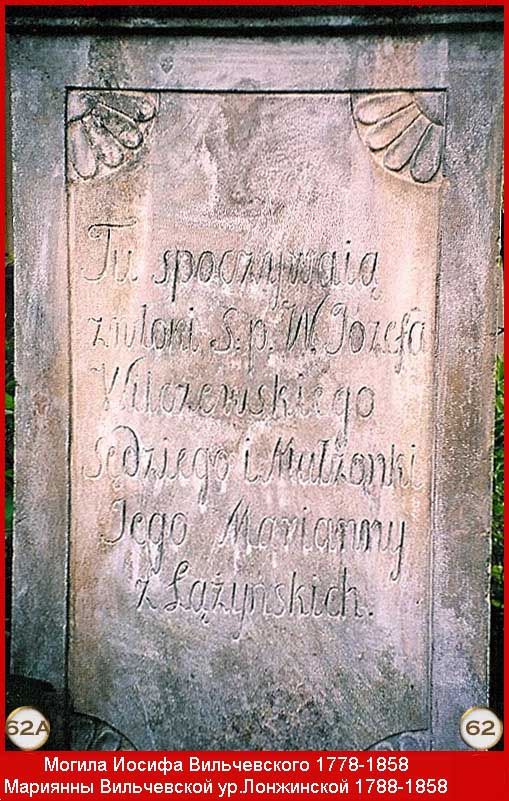 Tu spoczywaią
zwłoki S.p. W. Józefa
Wilczewskiego
Sędziego i Małżonki
Jego Maryanny
z Łążyńskich.
62A
62
Могила Иосифа Вильчевского 1778-1858
Мариянны Вильчевской ур.Лонжинской 1788-1858